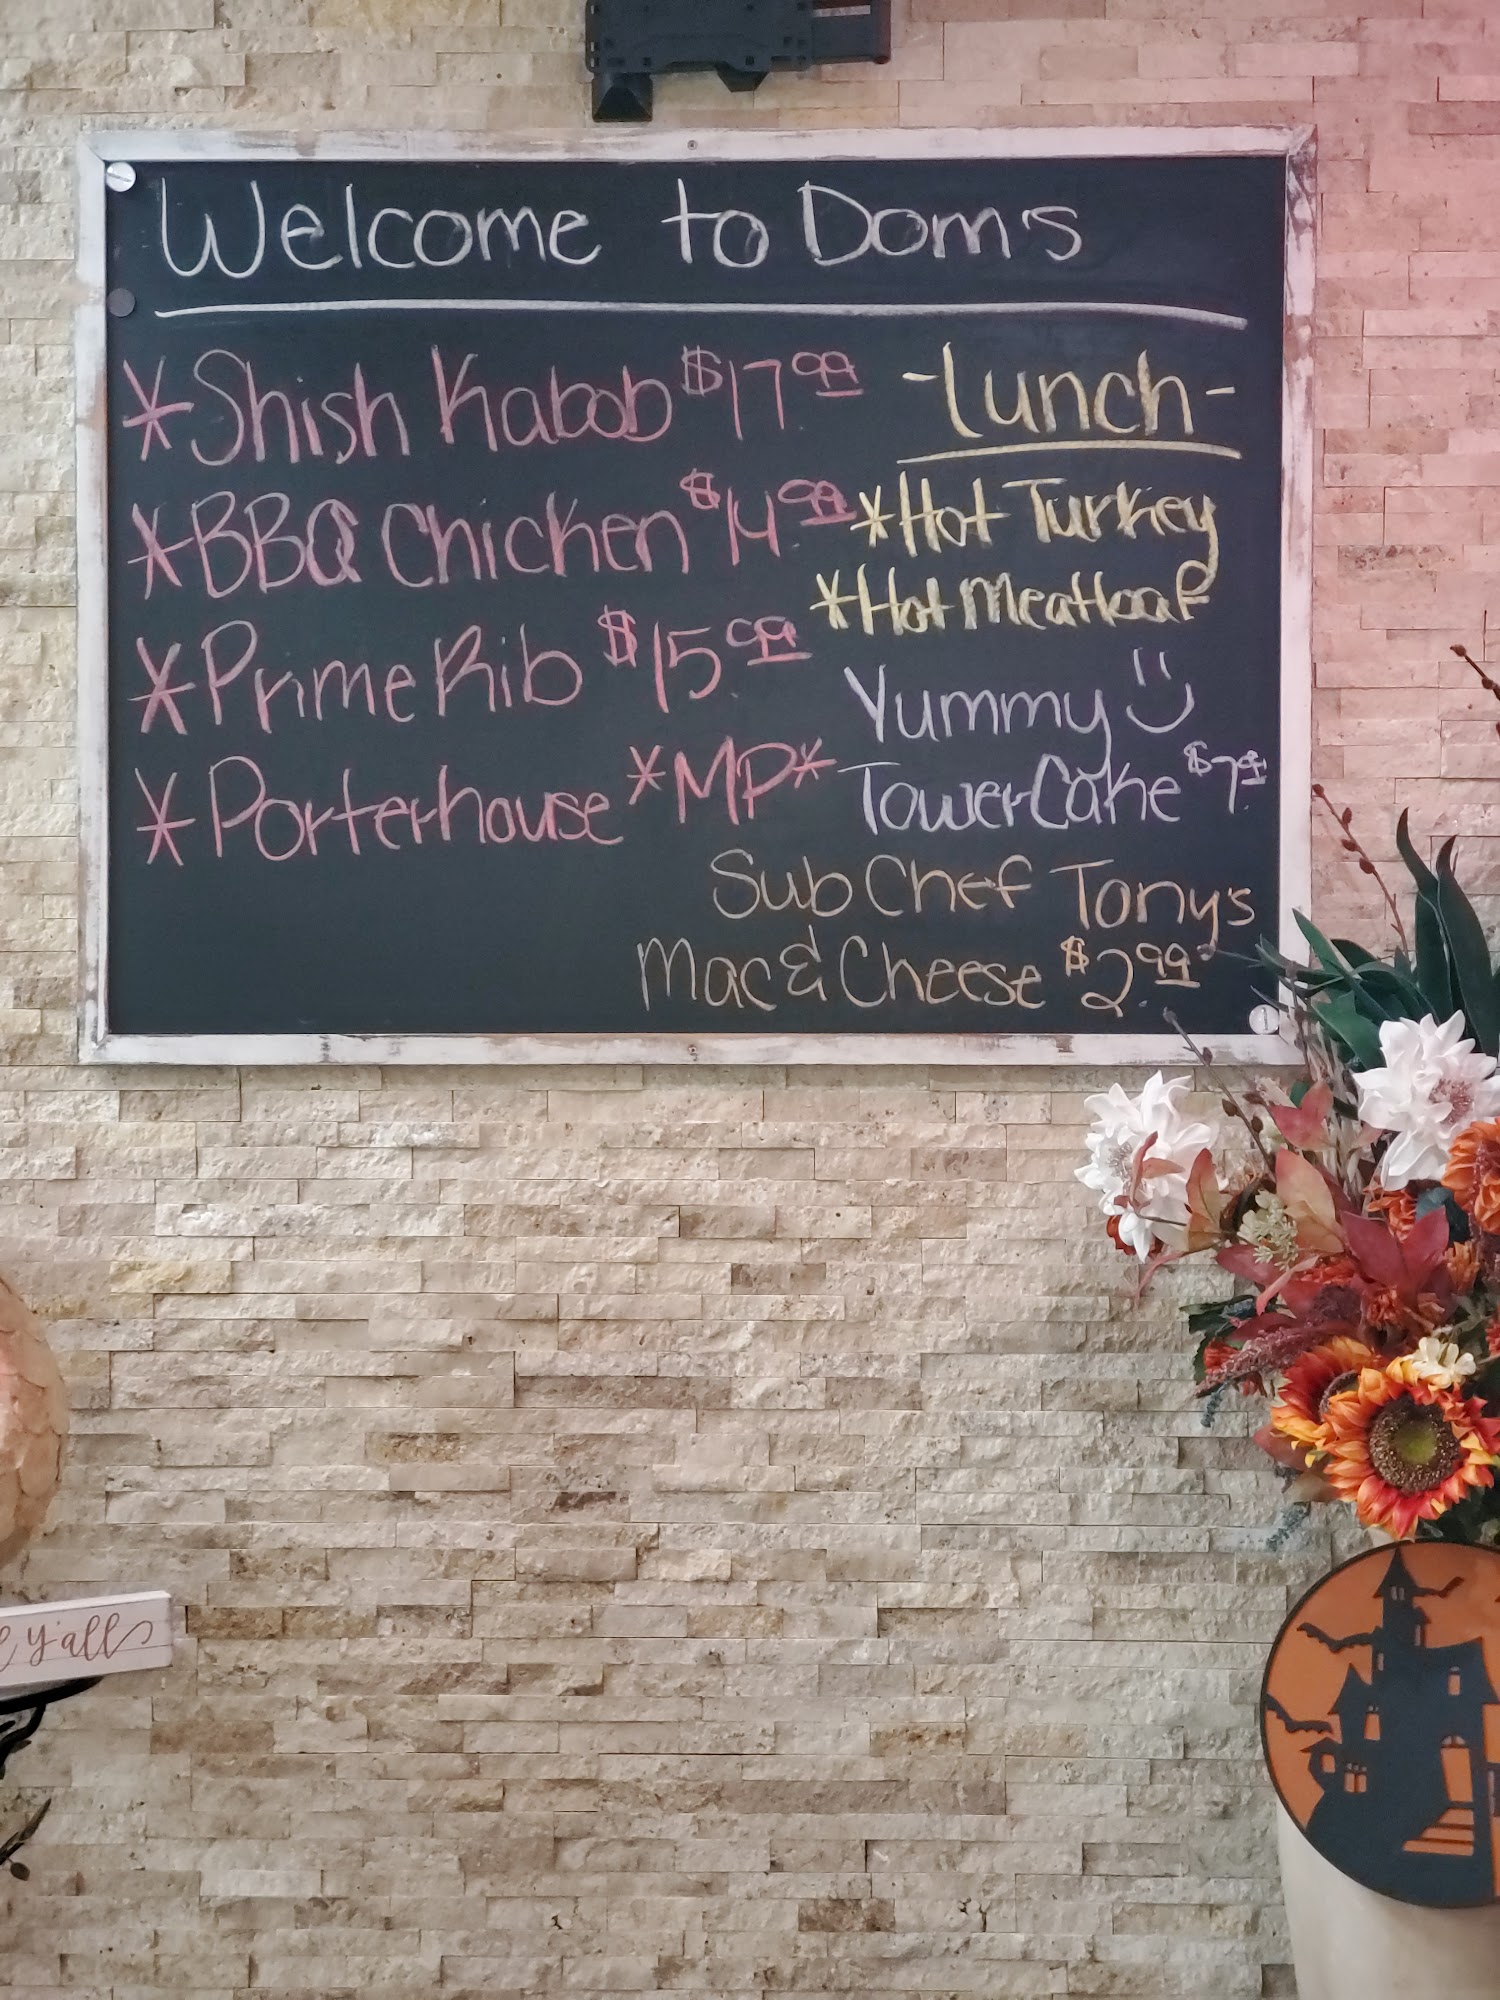 Welcome to Dom's
*Shish Kabob $17.99
*BBQ Chicken $14.99
*Prime Rib $15.99
*Porterhouse *MP*
-Lunch-
*Hot Turkey
*Hot Meatloaf
Yummy
Tower Cake $7.99
Sub Chef Tony's
Mac & Cheese $2.99
y'all